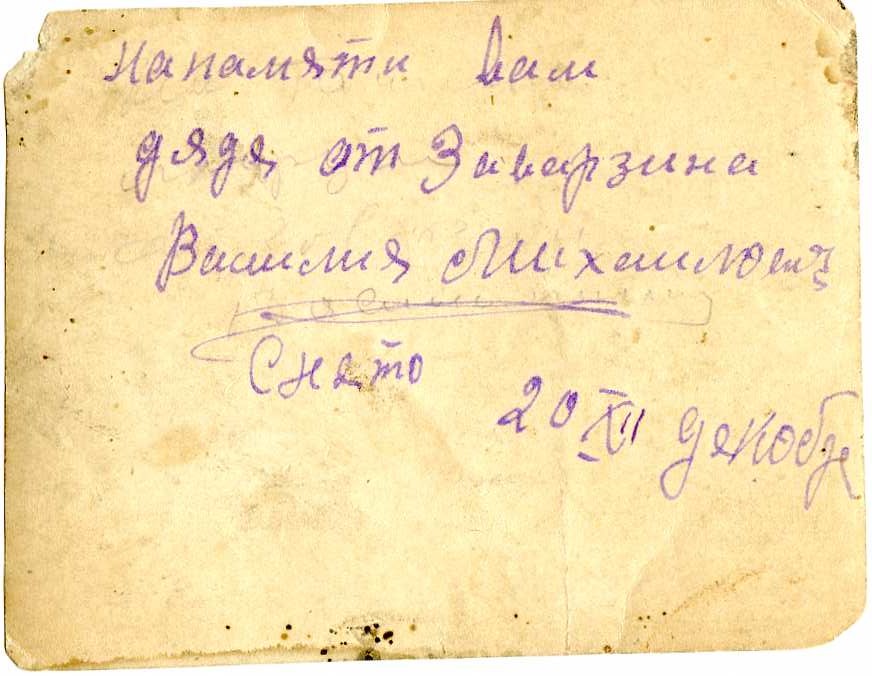 напамяти вам
дядя от Заварзина
Василия Михаилович
Снято
20 XII декабр